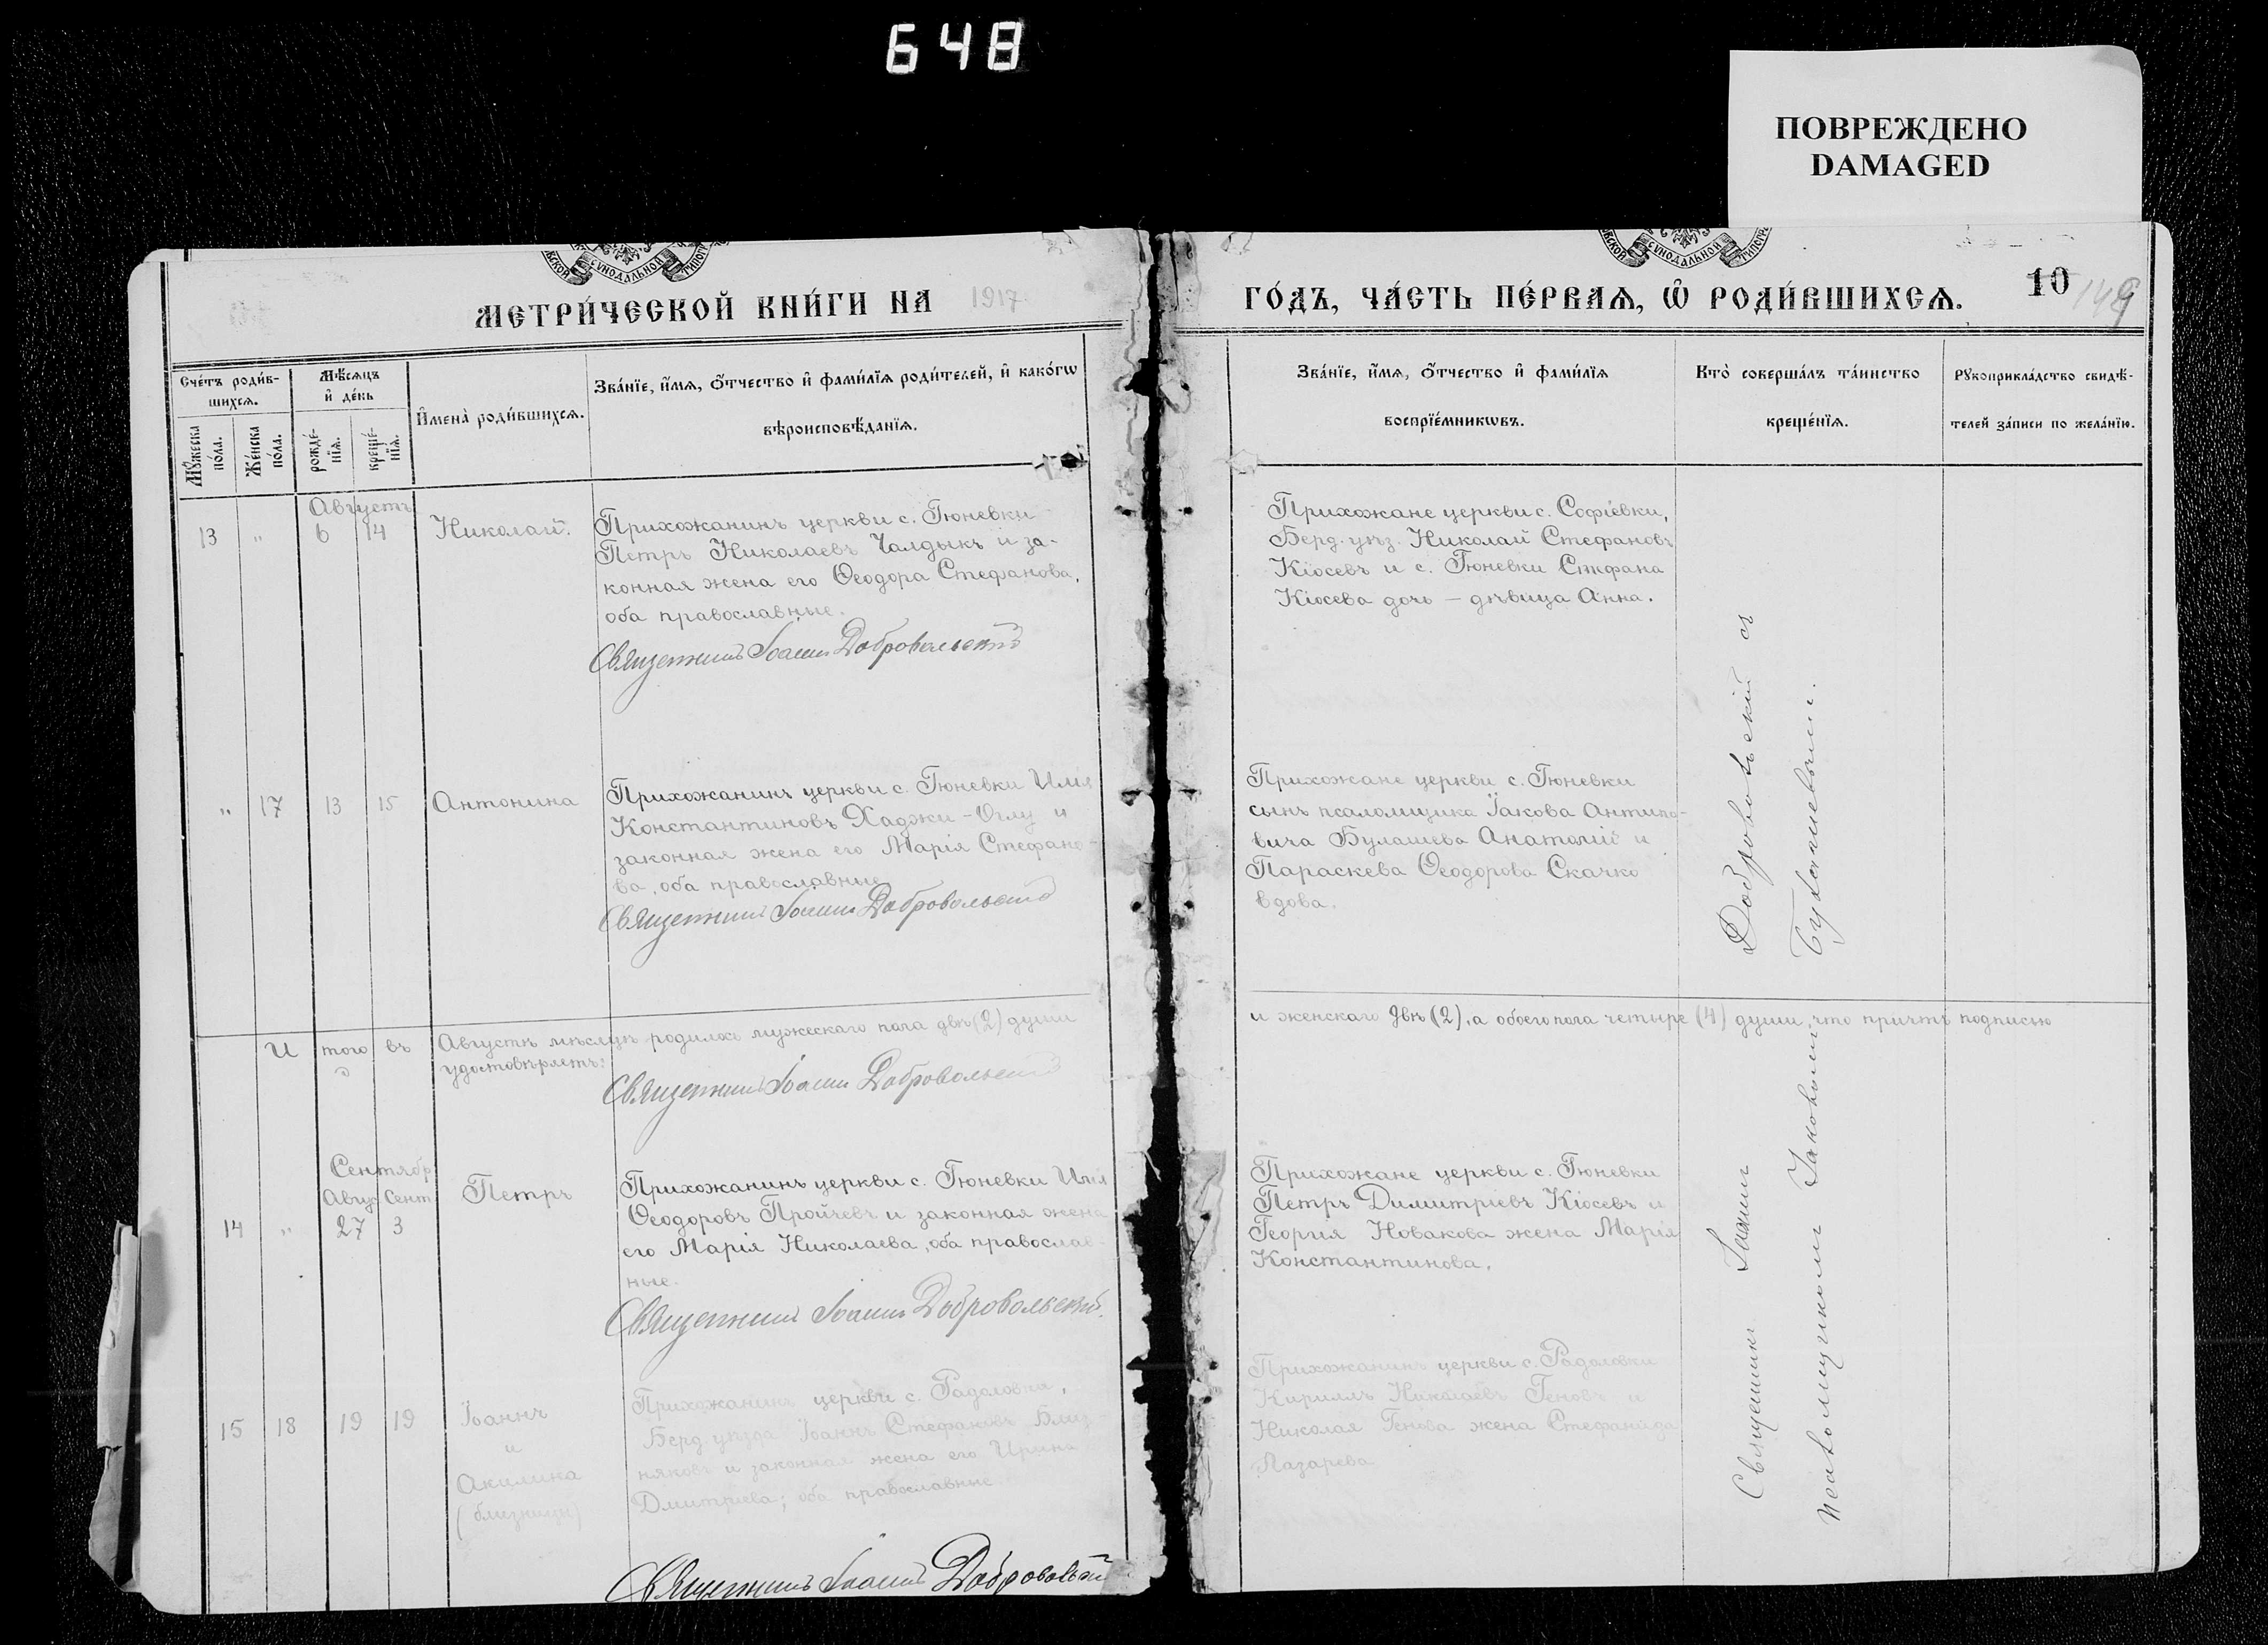 648
ПОВРЕЖДЕНО
DAMAGED
СѴНОДАЛЬНОЙ
СѴНОДАЛЬНОЙ
МЕТРИ́ЧЕСКОЙ КНИ́ГИ НА 1917
ГО́ДЪ, ЧА́СТЬ ПЕ́РВАѦ, Ѡ҆ РОДИ́ВШИХСѦ.
10
149
Сче́тъ роди́в-
шихсѧ.
Мꙋ́жеска по́ла.
Же́нска по́ла.
Мѣ́сѧцъ
и҆ де́нь
рожде́-
нїѧ.
креще́-
нїѧ.
И҆мена̀ роди́вшихсѧ.
Зва́нїе, и҆́мѧ, ѻ҆́тчество и҆ фами́лїѧ роди́телей, и҆ како́гѡ
вѣроисповѣ́данїѧ.
Зва́нїе, и҆́мѧ, ѻ҆́тчество и҆ фами́лїѧ
воспрїе́мникѡвъ.
Кто̀ соверша́лъ та́инство
креще́нїѧ.
Рꙋкоприкла́дство свидѣ́-
телей за́писи по жела́нїю.
Августъ
13 " 6 14 Николай.
Прихожанинъ церкви с. Гюневки
Петръ Николаевъ Чалдыкъ и за-
конная жена его Ѳеодора Стефанова,
оба православные.
Священникъ Іоаннъ Добровольскій
Прихожане церкви с. Софіевки,
Берд. уѣз. Николай Стефановъ
Кіосевъ и с. Гюневки Стефана
Кіосева дочь – дѣвица Анна.
" 17 13 15 Антонина
Прихожанинъ церкви с. Гюневки Илія
Константиновъ Хаджи-Оглу и
законная жена его Марія Стефано-
ва, оба православные
Священникъ Іоаннъ Добровольскій
Прихожане церкви с. Гюневки
сынъ псаломщика Іакова Антипо-
вича Булашева Анатолій и
Параскева Ѳеодорова Скачко
вдова.
И того въ Августѣ мѣсяцѣ родилось мужескаго пола двѣ (2) души
и женскаго двѣ (2), а обоего пола четыре (4) души, что причтъ подписью
удостовѣряетъ:
Священникъ Іоаннъ Добровольскій
Сентябр
Авгус Сент.
14 " 27 3 Петръ
Прихожанинъ церкви с. Гюневки Илія
Ѳеодоровъ Пройчевъ и законная жена
его Марія Николаева, оба православ-
ные.
Священникъ Іоаннъ Добровольскій.
Прихожане церкви с. Гюневки
Петръ Димитріевъ Кіосевъ и
Георгія Новакова жена Марія
Константинова.
15 18 19 19 Іоаннъ
и
Акилина
(близнецы)
Прихожанинъ церкви с. Радоловки,
Берд. уѣзда Іоаннъ Стефановъ Близ-
няковъ и законная жена его Ирина
Дмитріева; оба православные.
Священникъ Іоаннъ Добровольскій
Прихожанинъ церкви с. Радоловки
Кириллъ Николаевъ Геновъ и
Николая Генова жена Стефанида
Лазарева
Священникъ Іоаннъ Добровольскій съ
псаломщикомъ Іаковомъ Булашевымъ.